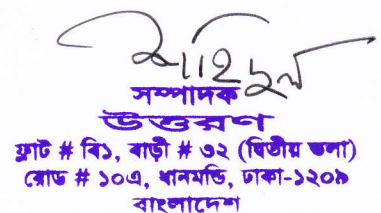 সম্পাদক
উত্তরণ
ফ্লাট # বি১, বাড়ী # ৩২ (দ্বিতীয় তলা)
রোড # ১০এ, ধানমন্ডি, ঢাকা-১২০৯
বাংলাদেশ